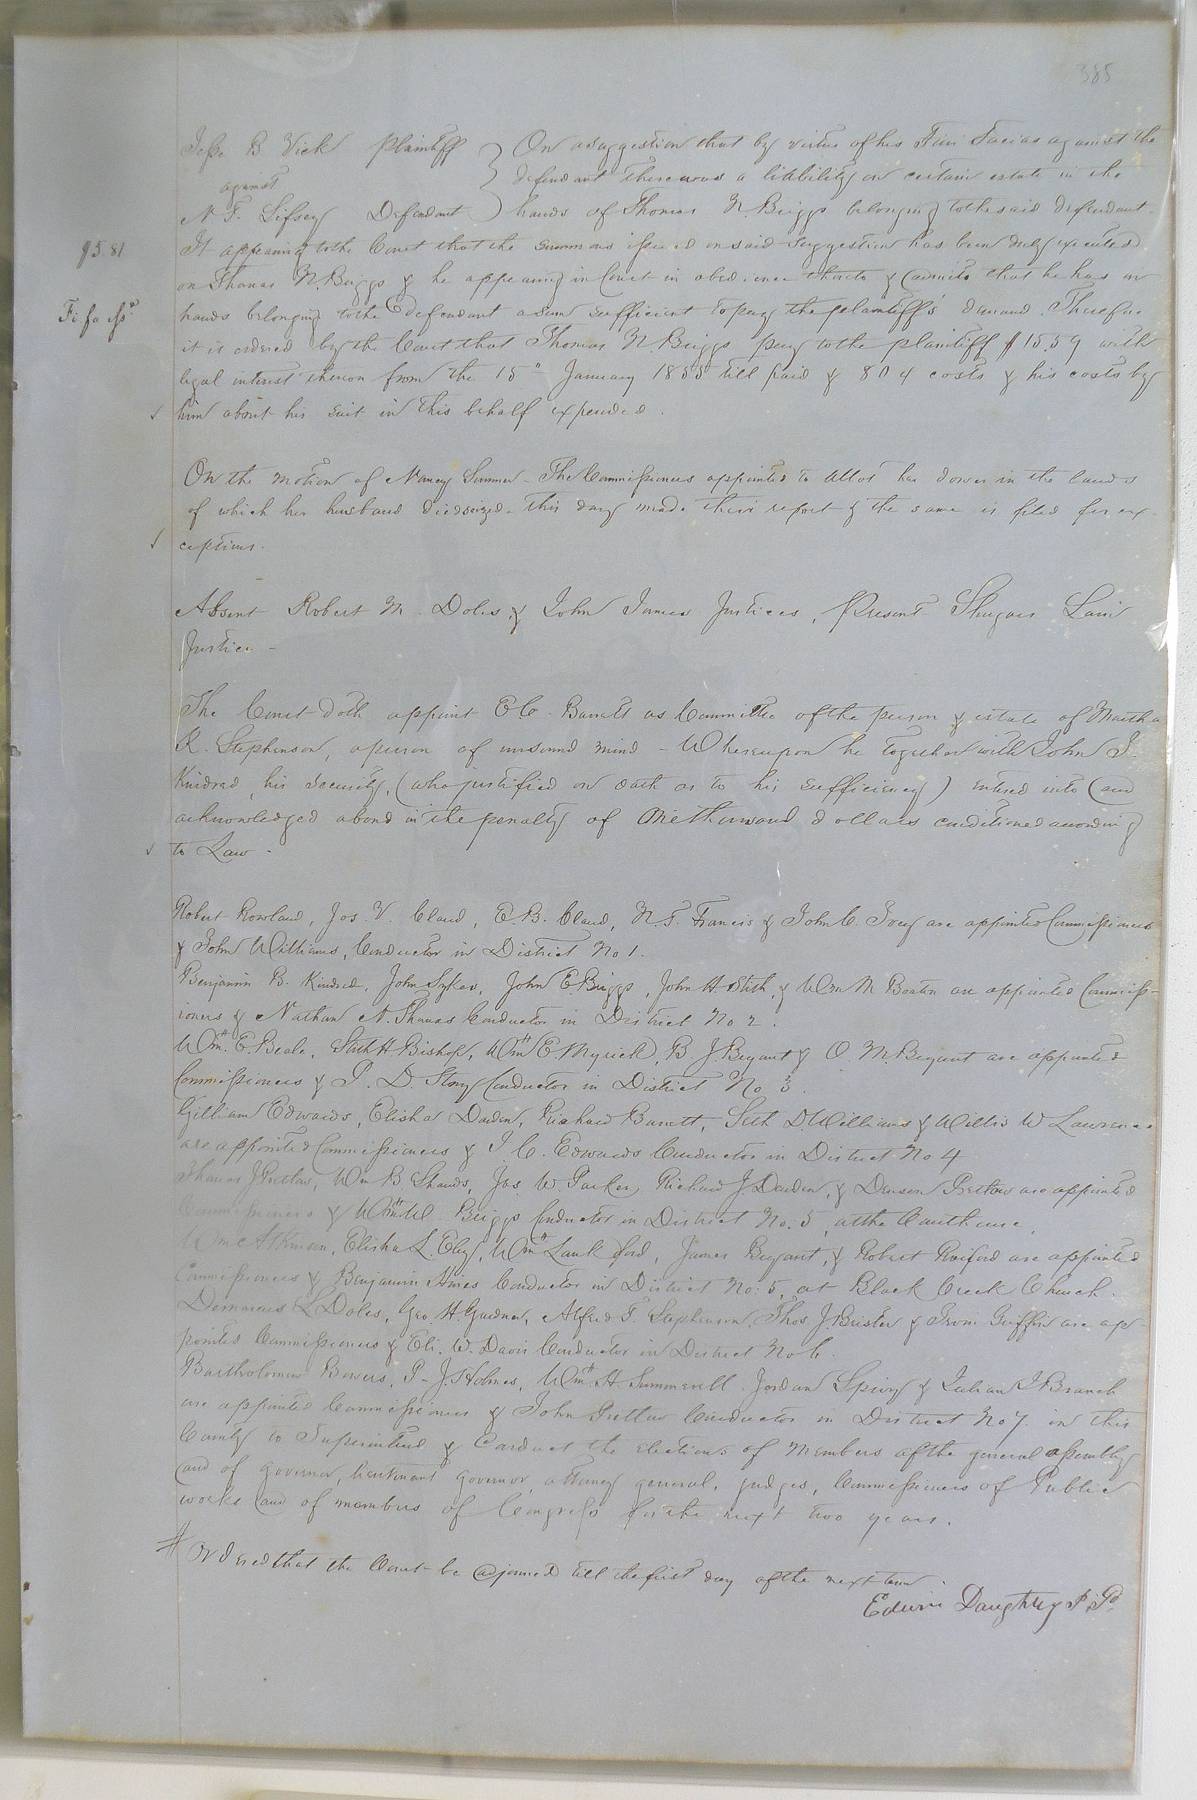 385
Jesse B Vick Plaintiff } On a suggestion that by virtue of his Fieri Facias against the
against defendant there was a liability on certain estate in the
N. F. Lifsey Defendant ) hands of Thomas N. Briggs belonging to the said defendant.
It appearing to the Court that the summons issued on said suggestion has been duly executed
on Thomas N. Briggs & he appearing in Court in obedience thereto & admits that he has in
hands belonging to the defendant a sum sufficient to pay the plaintiff's demand. Therefore
it is ordered by the Court that Thomas N. Briggs pay to the plaintiff $15.59 with
legal interest thereon from the 15" January 1855 till paid & 804 costs & his costs by
him about his suit in this behalf expended.
$5.81
Fi. fa issd
On the motion of Nancy Sumner - The Commissioners appointed to allot her dower in the lands
of which her husband died seized - this day made their report & the same is filed for ex-
ceptions.
Absent Robert M. Doles & John James Justices, Present Shugars Lain
Justice -
The Court doth appoint E C. Barrett as Committee of the person & estate of Martha
R. Stephenson, a person of unsound mind - Whereupon he together with John J.
Kindred his security, (who justified on oath as to his sufficiency) entered into and
acknowledged a bond in the penalty of One thousand dollars conditioned according
to Law -
Robert Rowland, Jos. V. Claud, E. B. Claud, N. F. Francis & John C. Ivey are appointed Commissioners
& John Williams, Conductor in District No 1.
Benjamin B. Kindred, John Sykes, John E. Briggs, John H Stith, & Wm M Beaton are appointed Commiss-
ioners & Nathan N. Thomas Conductor in District No 2.
Wm. E. Beale, Seth H Bishop, Wm E Myrick, B. J. Bryant & O. M Bryant are appointed
Commissioners & P. D. Story Conductor in District No 3.
Gilliam Edwards, Elisha Darden, Richard Barrett, Seth D. Williams & Willis W Lawrence
are appointed Commissioners & J. C. Edwards Conductor in District No 4
Thomas J Pretlow, Wm B Shands, Jos W Parker, Richard J Darden, & Denson Pretlow are appointed
Commissioners & Briggs Conductor in District No. 5, at the Courthouse,
Atkinson, Elisha L. Eley, Wm Lankford, James Bryant, & Robert Rawford are appointed
Commissioners & Benjamin Hines Conductor in District No: 5, at Black Creek Church.
Demarcus L Doles, Geo. H. Gardner, Alfred T. Stephenson, Thos. J. Brister & Irvin Griffin are ap-
pointed Commissioners & Eli. W. Davis Conductor in District No 6.
Bartholomew Bowers, P- J. Holmes, Wm. H. Summerell, Jordan Spivey & Julian J Branch
are appointed Commissioners & John Pretlow Conductor in District No 7 in this
County to Superintend & Conduct the elections of members of the general assembly
and of governor, lieutenant governor, attorney general, judges, Commissioners of Public
works and of members of Congress for the next two years.
Ordered that the Court be adjourned till the first day of the next term.
Edwin Daughtrey P. P.